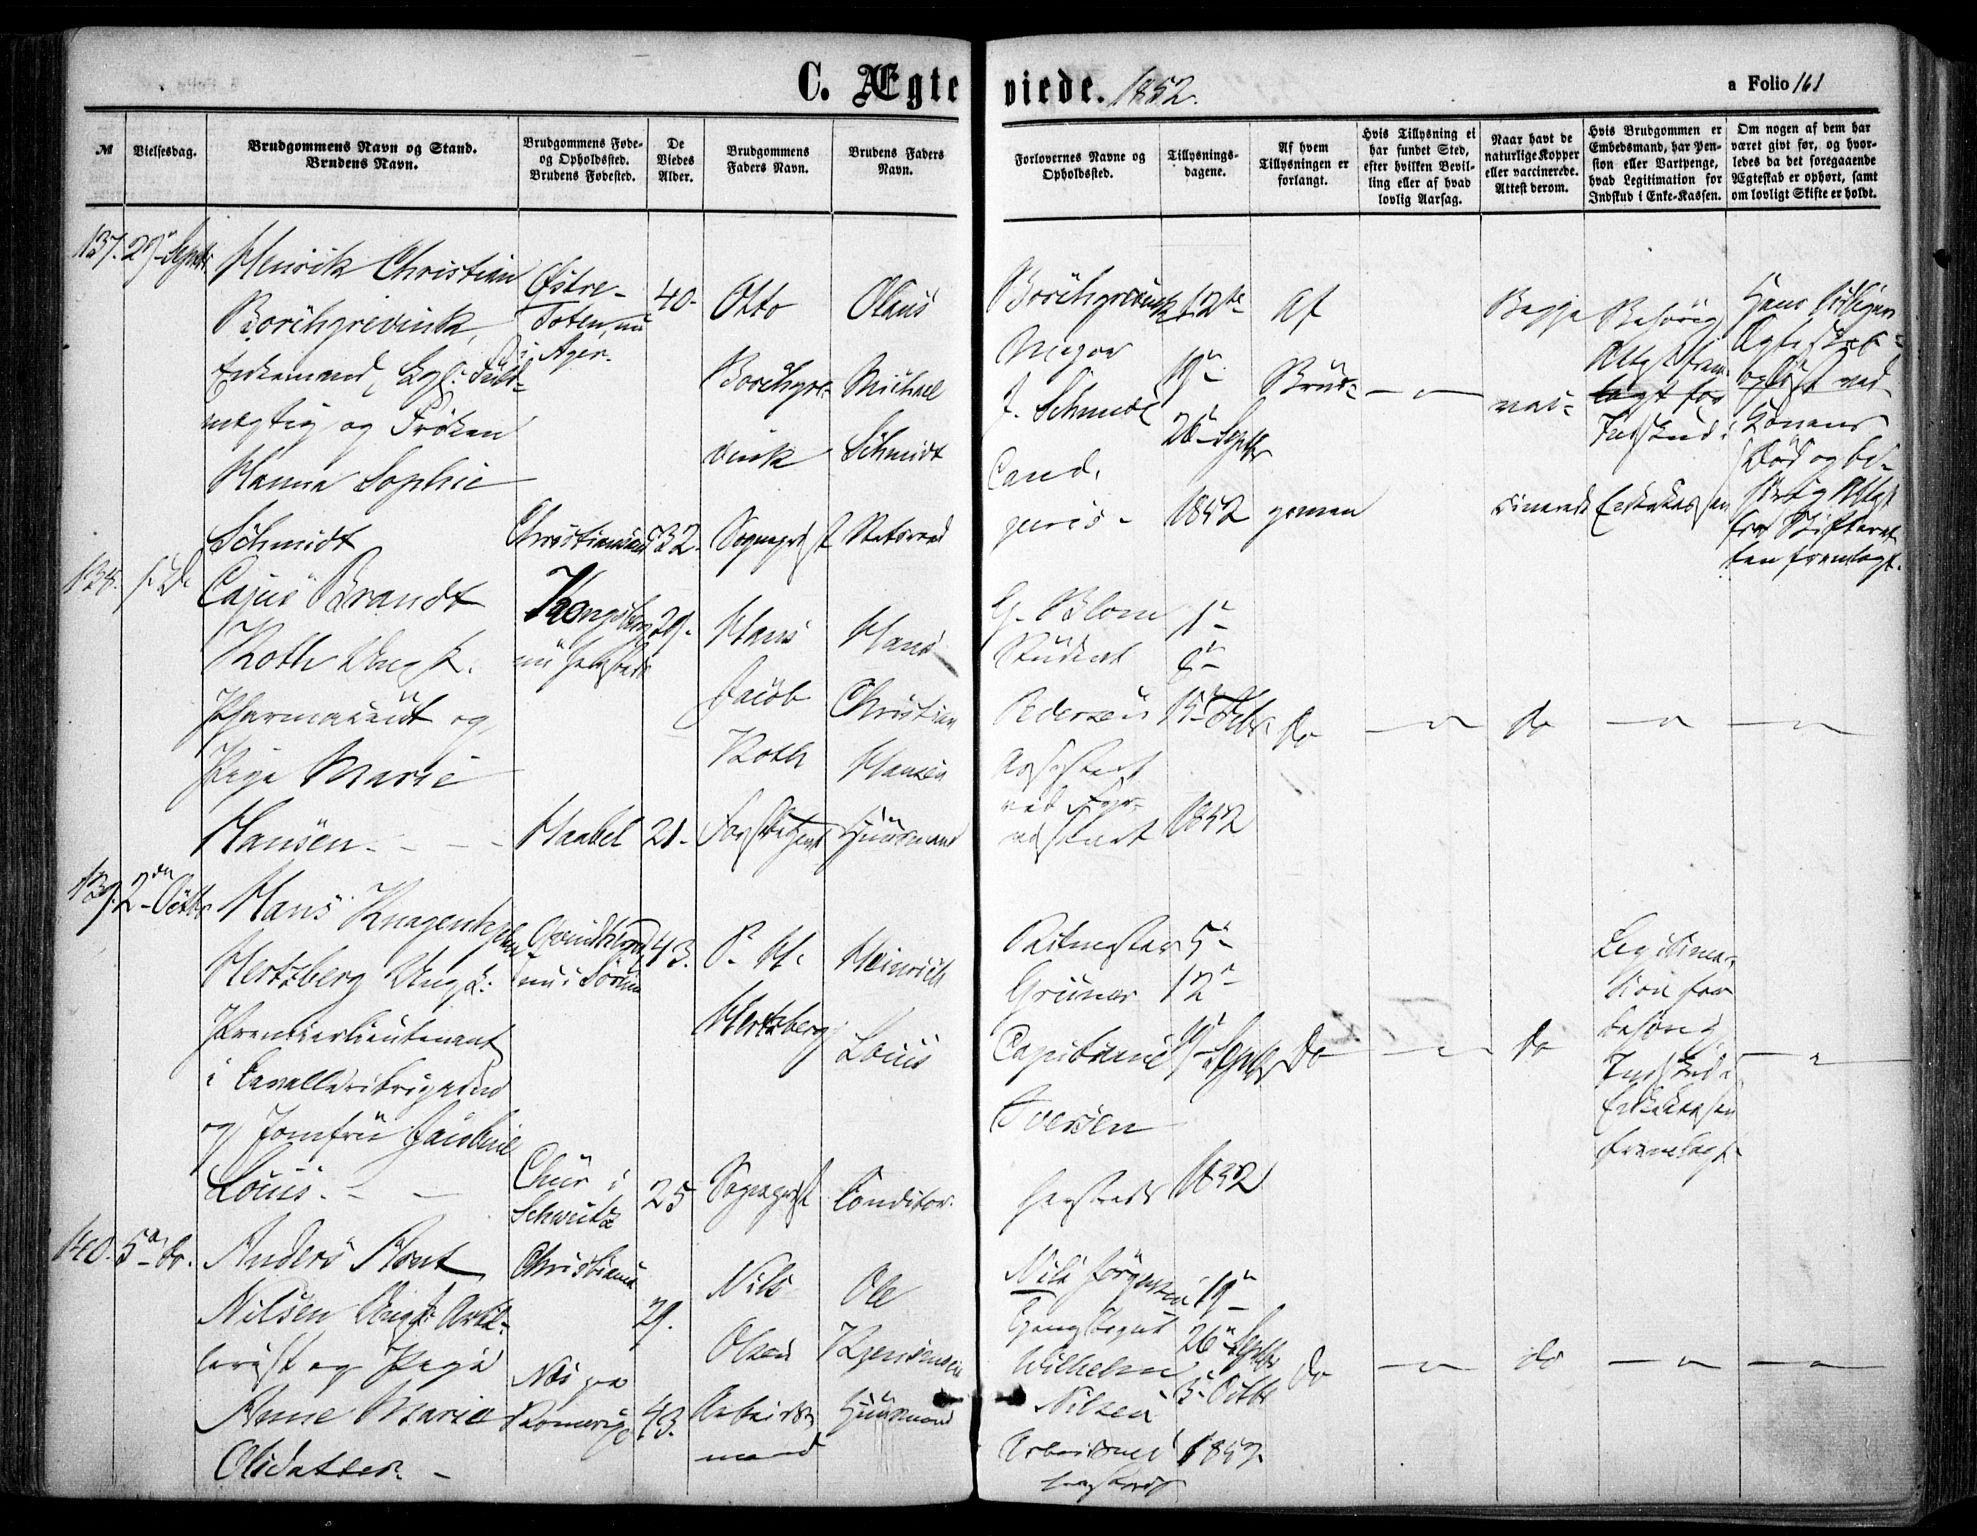 C. Ægteviede. 1852.
a Folio 161
№
Vielsesdag.
Brudgommens Navn og Stand.
Brudens Navn.
Brudgommens Føde-
og Opholdssted.
Brudens Fødested.
De
Viedes
Alder.
Brudgommens
Faders Navn.
Brudens Faders
Navn.
Forlovernes Navne og
Opholdssted.
Tillysnings-
dagene.
Af hvem
Tillysningen er
forlangt.
Hvis Tillysning ei
har fundet Sted,
efter hvilken Bevil-
ling eller af hvad
lovlig Aarsag.
Naar havt de
naturlige Kopper
eller vaccinerede.
Attest derom.
Hvis Brudgommen er
Embedsmand, har Pen-
sion eller Vartpenge,
hvad Legitimation for
Indskud i Enke-Kassen.
Om nogen af dem har
været givt før, og hvor-
ledes da det foregaaende
Ægteskab er ophørt, samt
om lovligt Skifte er holdt.
137. 29 Septbr
Henrik Christian
Borchgrevink,
Enkemand, Kgl. Fuld-
mægtig og Frøken
Hanna Sophie
Schmidt
Østre-
Toten, nu
i Ager.
Christiansund
40-
32.
Otto
Borchgre-
vink
Sogneprest
Olaus
Michael
Schmidt
Statsraad
Borchgrevink
Major
J. Schmidt
Cand.
juris-
12te
19
26 Septbr
1852
Af
Brud-
gomen
Begge
vac-
cinerede
Attest frem-
lagt for
Indskud i
Enkekassen
Hans tidligere
Ægteskab
opløst ved
Konens
Død og be-
hørig Attest
fra Skifteret-
ten fremlagt.
138. s. D.
Cajus Brandt
Roth Ungk.
Pharmaceut og
Pige Marie
Hansen
Kongsberg
nu her
29.
21.
Hans
Jacob
Roth
Hans
Christian
Hansen
Huusmand
G. Blom
Student
Pedersen
1
8
15 Febr
1852
do
do
139. 2den Octbr
Hans Knagenhjelm
Hertzberg Ungk.
Premierlieutenant
i Cavalleribrigaden
og Jomfru Jacobine
Louis.
nu i Sørum
Chur i
Schweitz
43.
25
P. H.
Hertzberg
Sogneprest
Heinrich
Louis
Conditor.
Ritmester
Grüner
Capitaine
Iversen
5
12
19 Septbr
1852
do
do
Legitima-
tion for
behørig
Indskud i
Enkekassen
fremlagt
140. 5 do.
Anders
Nilsen Ungk. Artil-
lerist og Pige
Anne Marie
Olsdatter
Christiania
Næs paa
Romerige
29.
43.
Nils
Olsen
Arbeids-
mand
Ole
Huusmand
Nils Jørgensen
Wilhelm
Nilsen
Arbeidsmd
19
26 Septbr
3 Octbr
1852
do
do